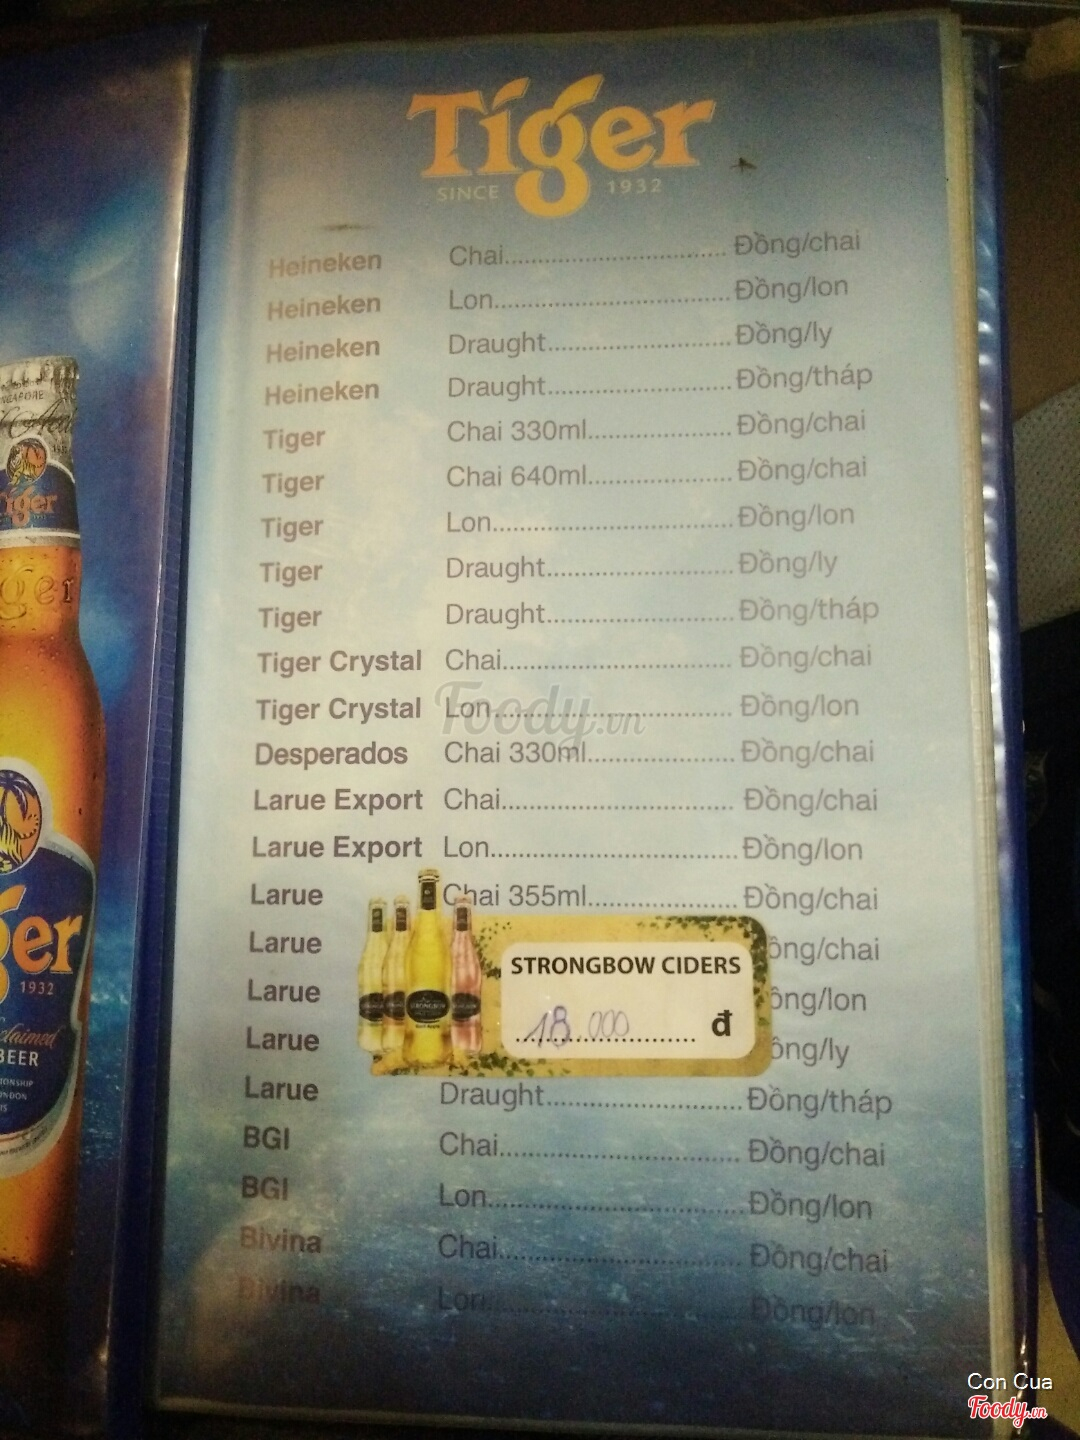 Tiger
SINCE 1932
Heineken Chai.......................... Đồng/chai
Heineken Lon............................Đồng/lon
Heineken Draught......................Đồng/ly
Heineken Draught...................... Đồng/tháp
Tiger Chai 330ml................. Đồng/chai
Tiger Chai 640ml.................Đồng/chai
Tiger Lon.............................Đồng/lon
Tiger Draught.......................Đồng/ly
Tiger Draught...................... Đồng/tháp
Tiger Crystal Chai........................... Đồng/chai
Tiger Crystal Lon............................ Đồng/lon
Desperados Chai 330ml................. Đồng/chai
Larue Export Chai........................... Đồng/chai
Larue Export Lon.............................Đồng/lon
Larue Chai 355ml..................Đồng/chai
Larue ồng/chai
Larue ồng/lon
Larue ồng/ly
Larue Draught.......................Đồng/tháp
BGI Chai............................ Đồng/chai
BGI Lon..............................Đồng/lon
Bivina Chai............................ Đồng/chai
Bivina Lon.............................. Đồng/lon
STRONGBOW CIDERS
18.000 đ
SINGAPORE
Tiger
1932
ger
ger
1932
claimed
BEER
TONSHIP
ONDON
Foody.vn
Con Cua
Foody.vn